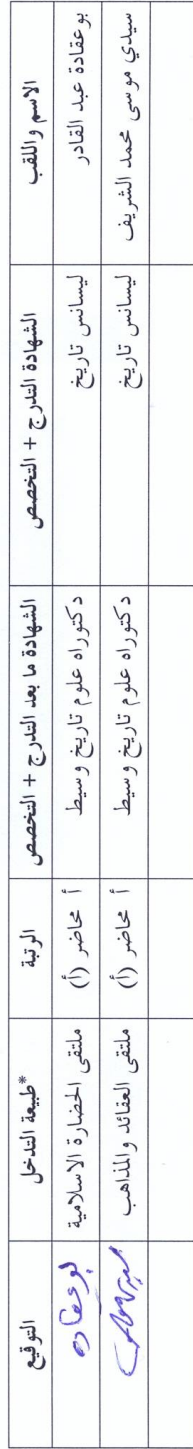 الاسم واللقب	الشهادة التدرج + التخصص	الشهادة ما بعد التدرج + التخصص	الرتبة	*طبيعة التدخل	التوقيع
بوعقادة عبد القادر	ليسانس تاريخ	دكتوراه علوم تاريخ وسيط	أ محاضر (أ)	ملتقى الحضارة الاسلامية	بوعقاده
سيدي موسى محمد الشريف	ليسانس تاريخ	دكتوراه علوم تاريخ وسيط	أ محاضر (أ)	ملتقى العقائد والمذاهب